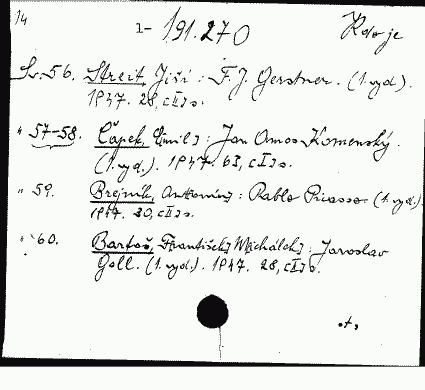 14
1- 191.270
Kdo je
Sv. 56. Streit, Jiří : F. J. Gerstner. (1. vyd.).
1947. 28, [I] s.
" 57-58. Čapek, Emil] : Jan Amos Komenský.
(1. vyd.). 1947. 63, [I] s.
" 59. Brejník, Antonín] : Pablo Picasso (1. vyd.)
1947. 30, [I] s.
" 60. Bartoš, František] Michálek] : Jaroslav
Goll. (1. vyd.). 1947. 28, [I] s.